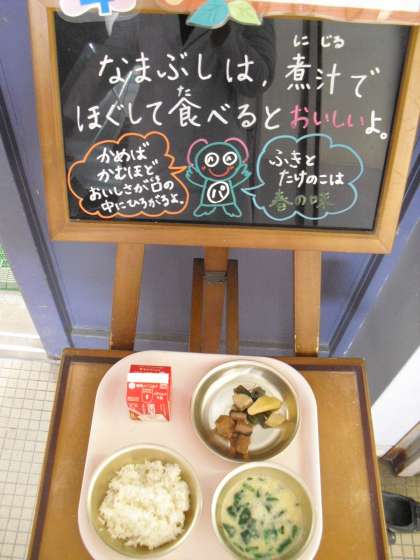 なまぶしは、煮汁で
にじる
ほぐして食べるとおいしいよ。
た
かめば
かむほど
おいしさが口の
中にひろがるよ。
パ
ふきと
たけのこは
春の味